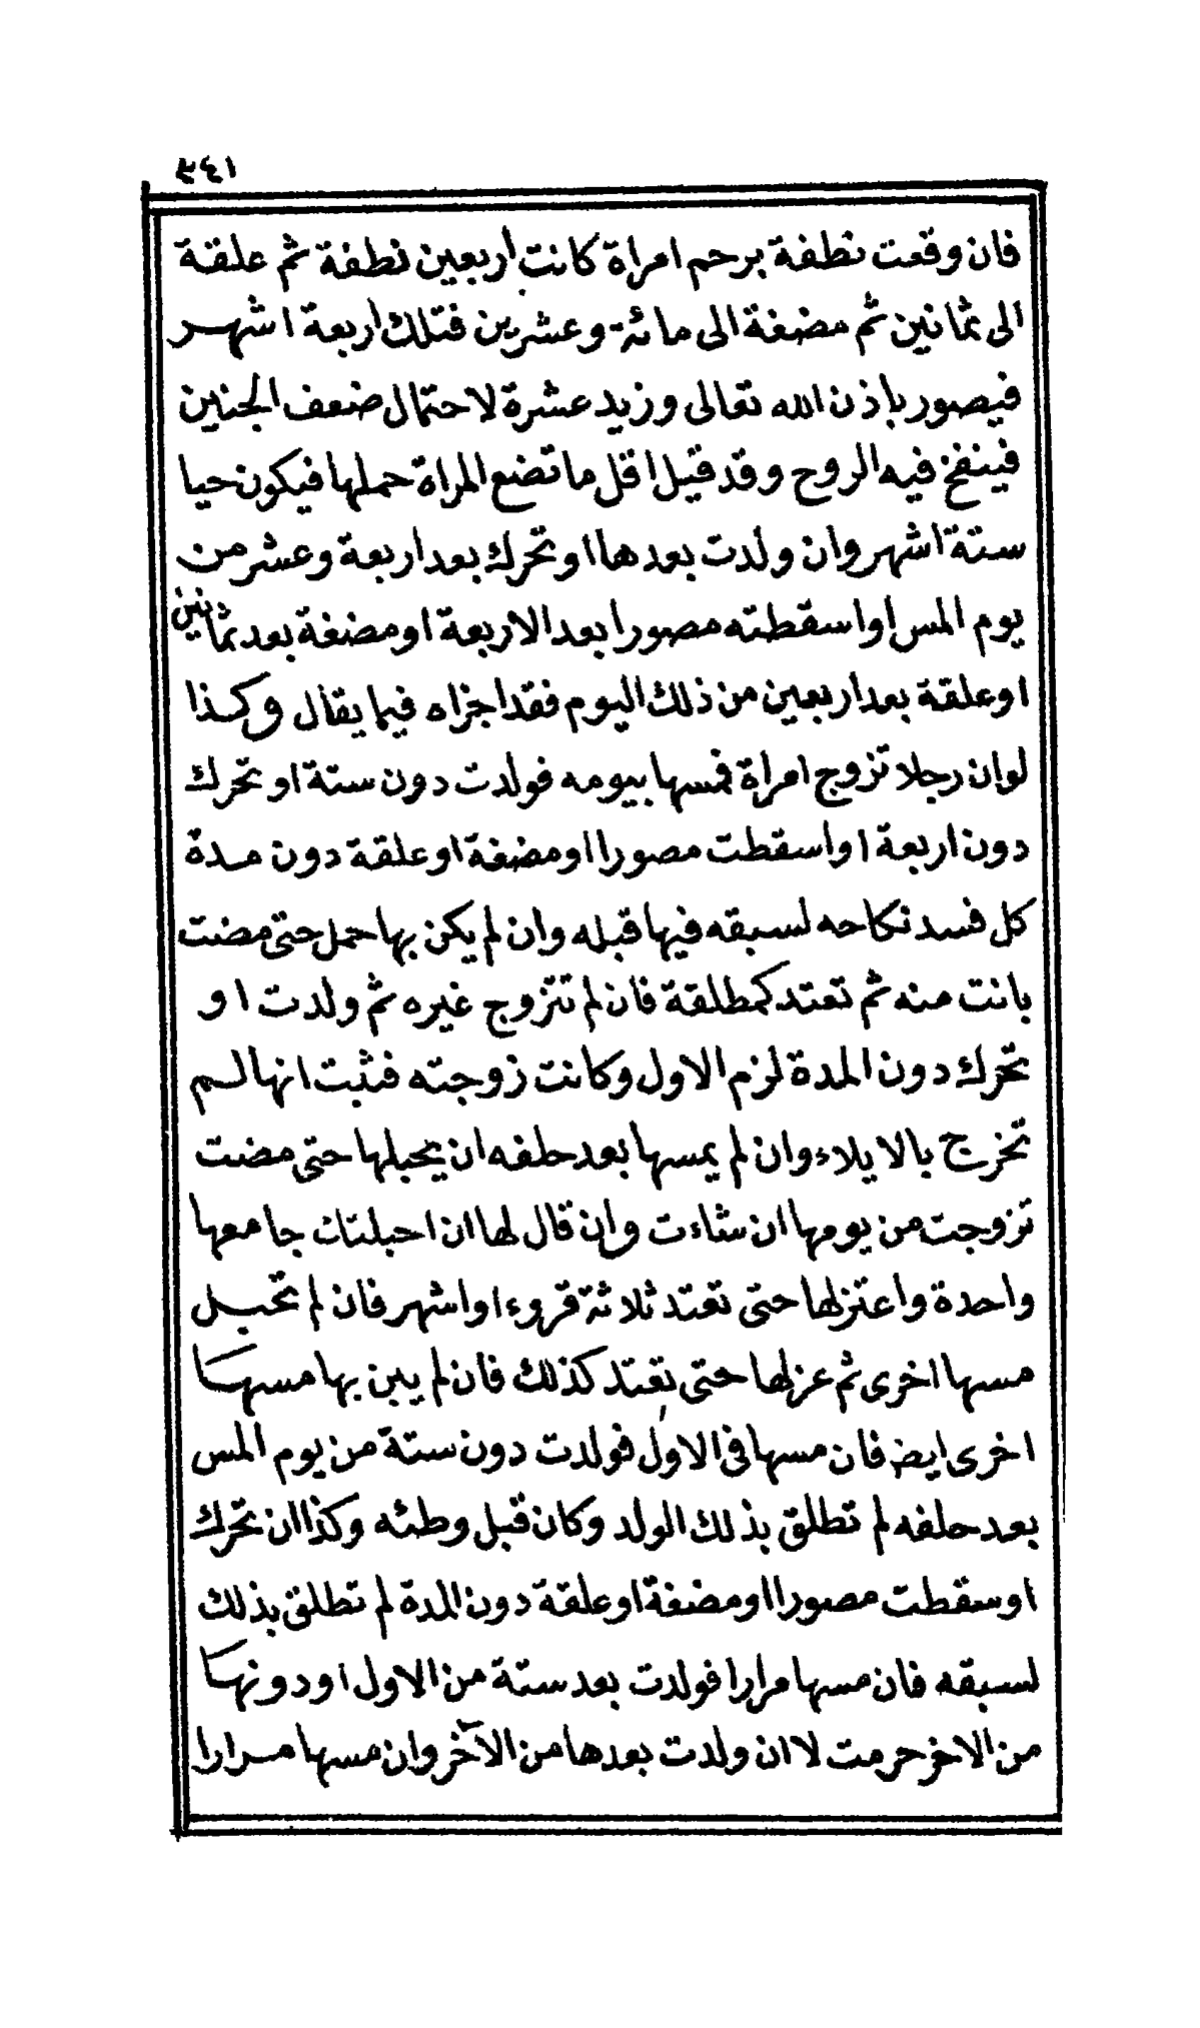 ٣٤١
فان وقعت نطفة برحم امراة كانت اربعين نطفة ثم علقة
الى ثمانين ثم مضغة الى مائة وعشرين فتلك اربعة اشهر
فيصور باذن الله تعالى وزيد عشرة لاحتمال ضعف الجنين
فينفخ فيه الروح وقد قيل اقل ما تضع المراة حملها فيكون حيا
ستة اشهر وان ولدت بعدها او تحرك بعد اربعة وعشر من
يوم المس او اسقطته مصورا بعد الاربعة او مضغة بعد ثمانين
او علقة بعد اربعين من ذلك اليوم فقد اجزاه فيما يقال وكذا
لو ان رجلا تزوج امراة فمسها بيومه فولدت دون ستة او تحرك
دون اربعة او اسقطت مصورا او مضغة او علقة دون مدة
كل فسد نكاحه لسبقه فيها قبله وان لم يكن بها حمل حتى مضت
بانت منه ثم تعتد كمطلقة فان لم تتزوج غيره ثم ولدت او
تحرك دون المدة لزم الاول وكانت زوجته فثبت انها لم
تخرج بالايلاء وان لم يمسها بعد حلفه ان يحبلها حتى مضت
تزوجت من يومها ان شاءت وان قال لها ان احبلتك جامعها
واحدة واعتزلها حتى تعتد ثلاثة قروء او اشهر فان لم تحبل
مسها اخرى ثم عزلها حتى تعتد كذلك فان لم يبن بها مسها
اخرى ايض فان مسها فى الاول فولدت دون ستة من يوم المس
بعد حلفه لم تطلق بذلك الولد وكان قبل وطئه وكذا ان تحرك
او سقطت مصورا او مضغة او علقة دون المدة لم تطلق بذلك
لسبقه فان مسها مرارا فولدت بعد ستة من الاول او دونها
من الاخر حرمت لا ان ولدت بعدها من الآخر وان مسها مرارا